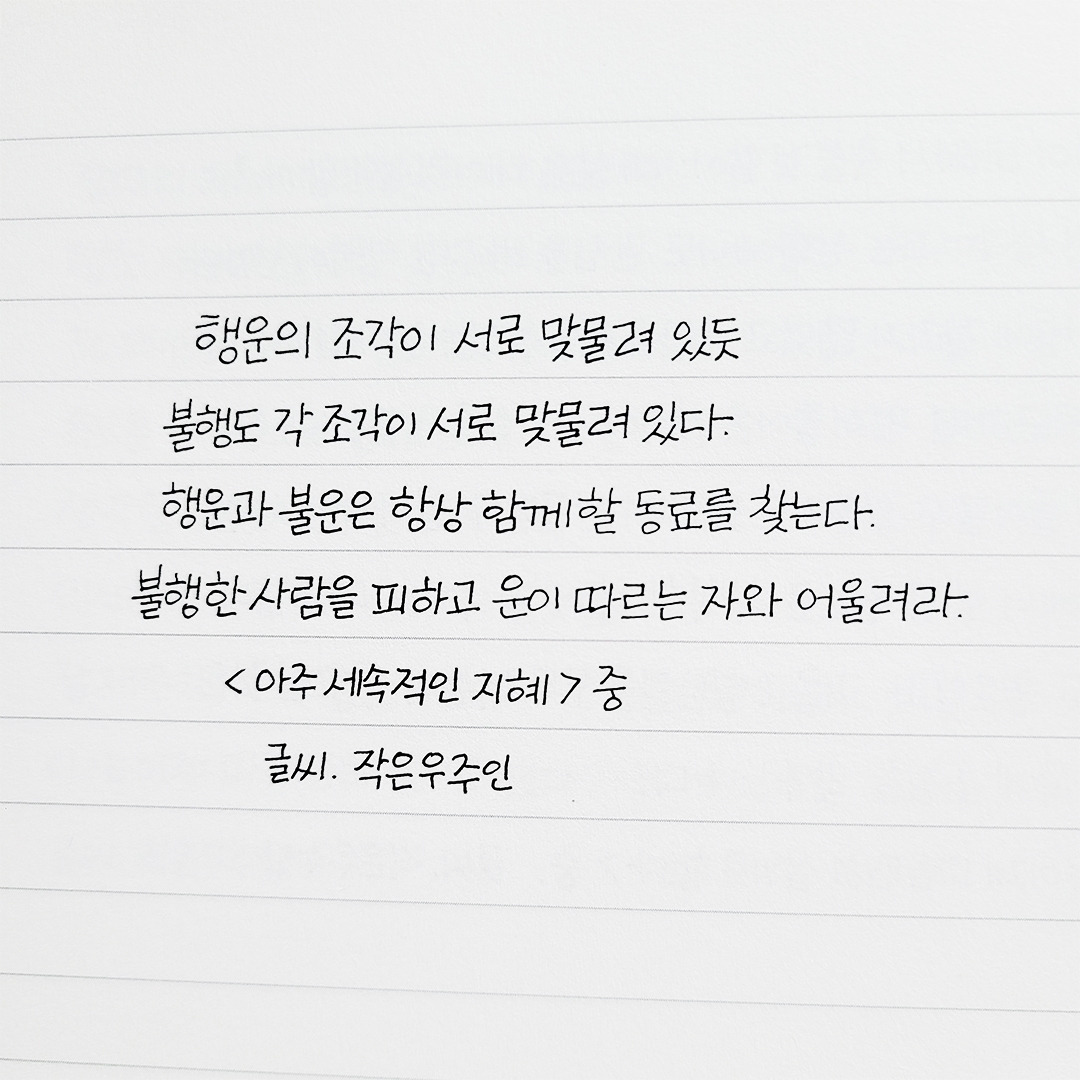 행운의 조각이 서로 맞물려 있듯
불행도 각 조각이 서로 맞물려 있다.
행운과 불운은 항상 함께할 동료를 찾는다.
불행한 사람을 피하고 운이 따르는 자와 어울려라.
<아주 세속적인 지혜> 중
글씨. 작은우주인